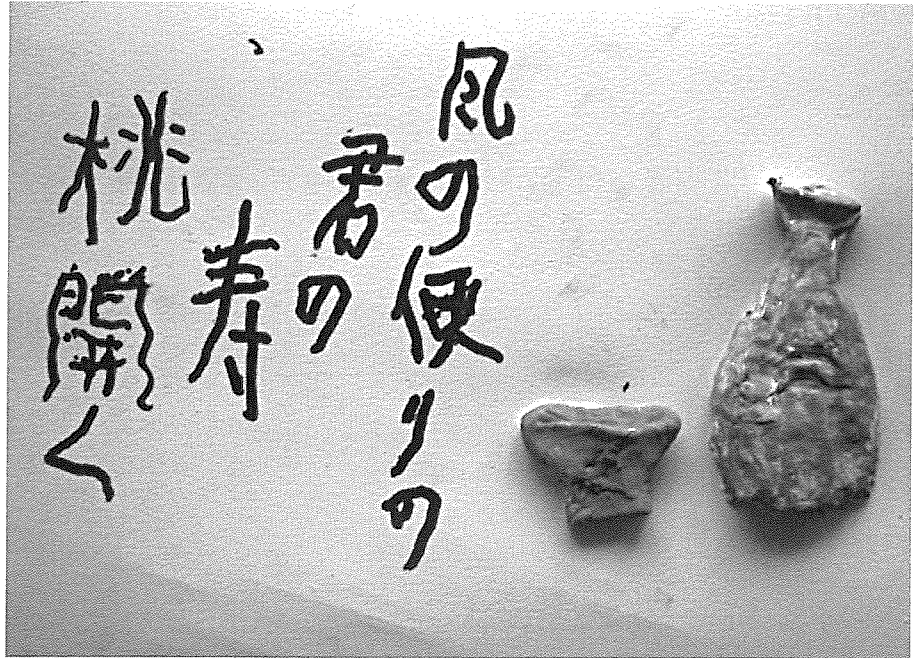 風の便りの
君の
寿
桃開く